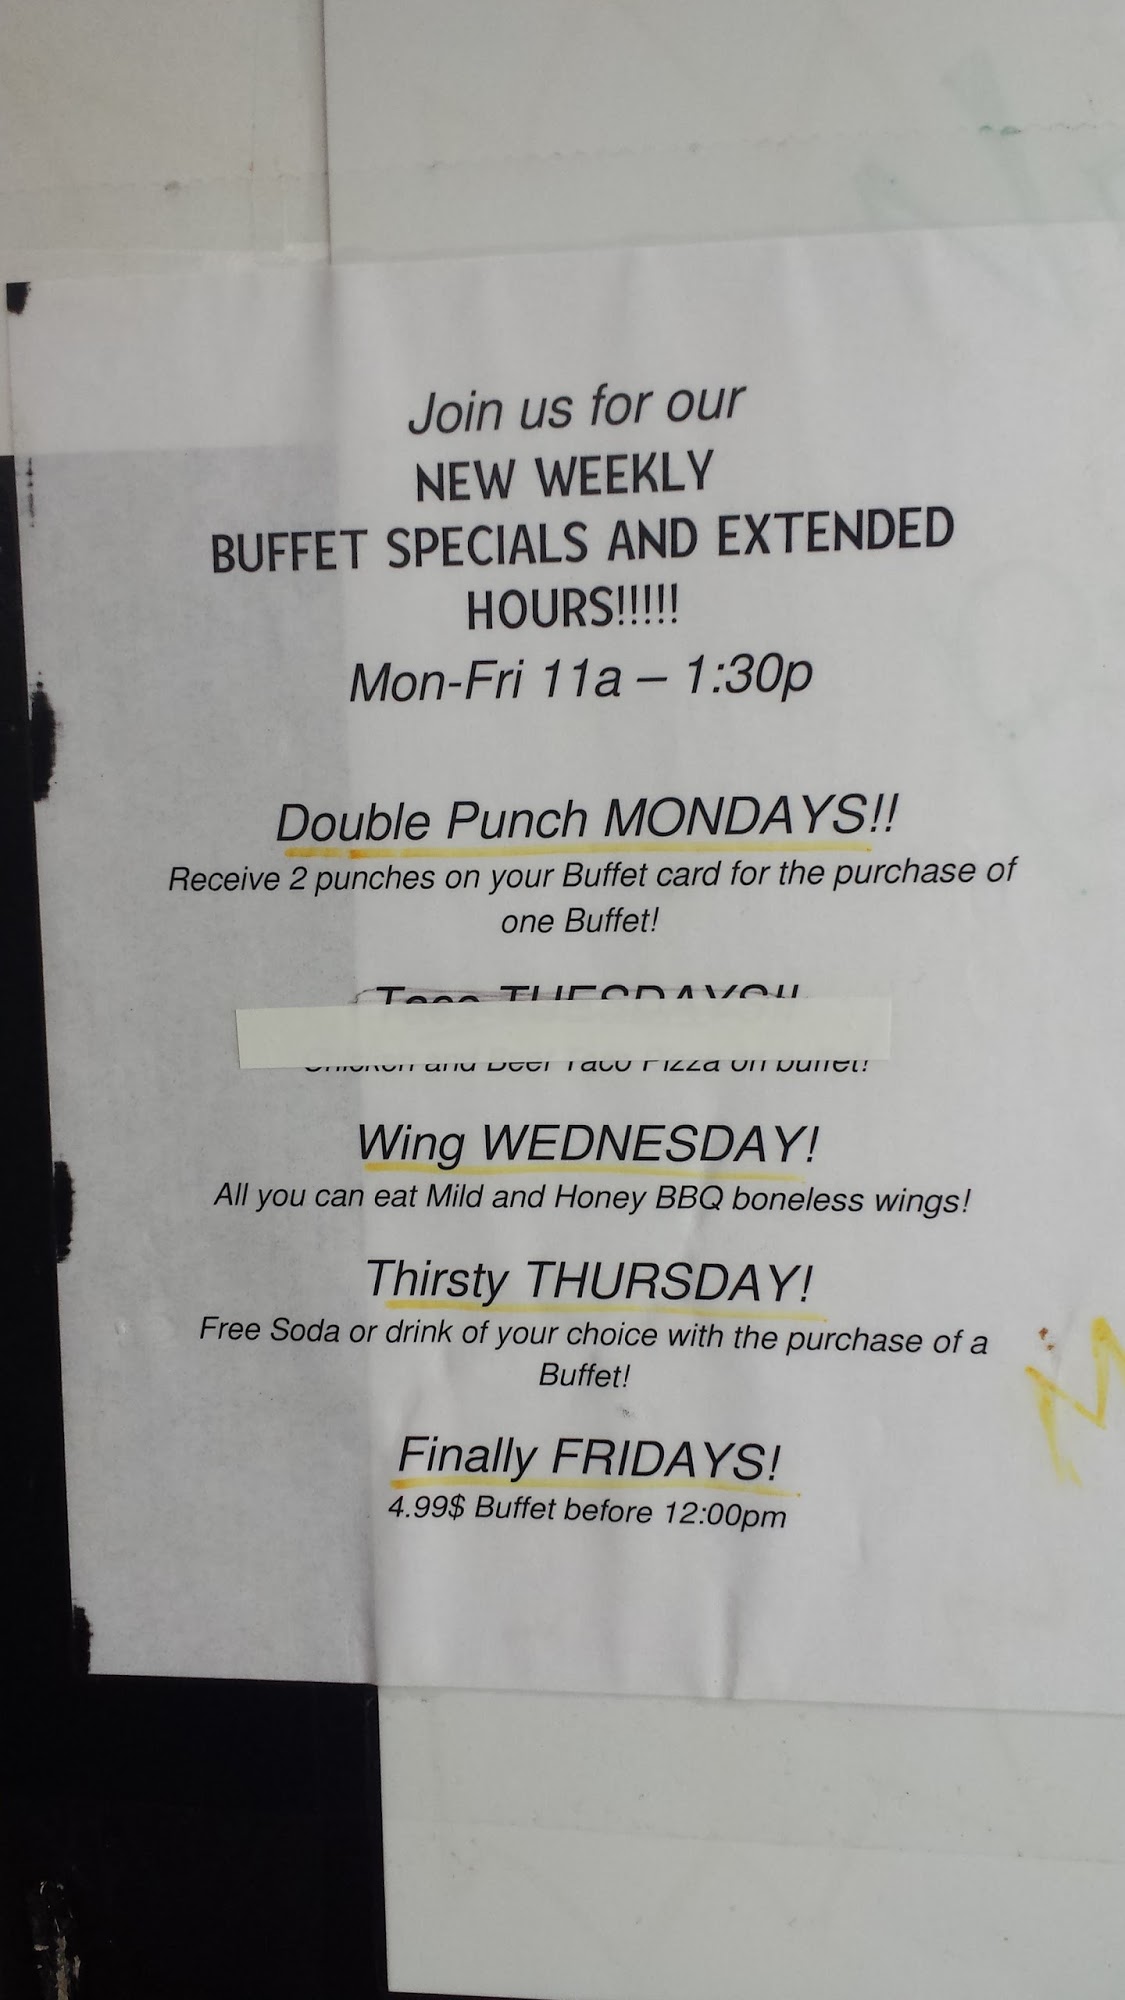 Join us for our
NEW WEEKLY
BUFFET SPECIALS AND EXTENDED
HOURS!!!!!
Mon-Fri 11a – 1:30p
Double Punch MONDAYS!!
Receive 2 punches on your Buffet card for the purchase of
one Buffet!
Taco TUESDAYS!!
Chicken and Beef Taco Pizza on buffet!
Wing WEDNESDAY!
All you can eat Mild and Honey BBQ boneless wings!
Thirsty THURSDAY!
Free Soda or drink of your choice with the purchase of a
Buffet!
Finally FRIDAYS!
4.99$ Buffet before 12:00pm